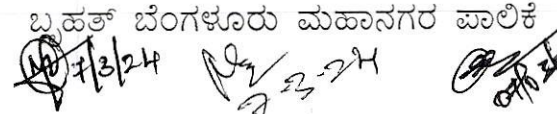 ಬೃಹತ್ ಬೆಂಗಳೂರು ಮಹಾನಗರ ಪಾಲಿಕೆ
7/3/24 7-3-24